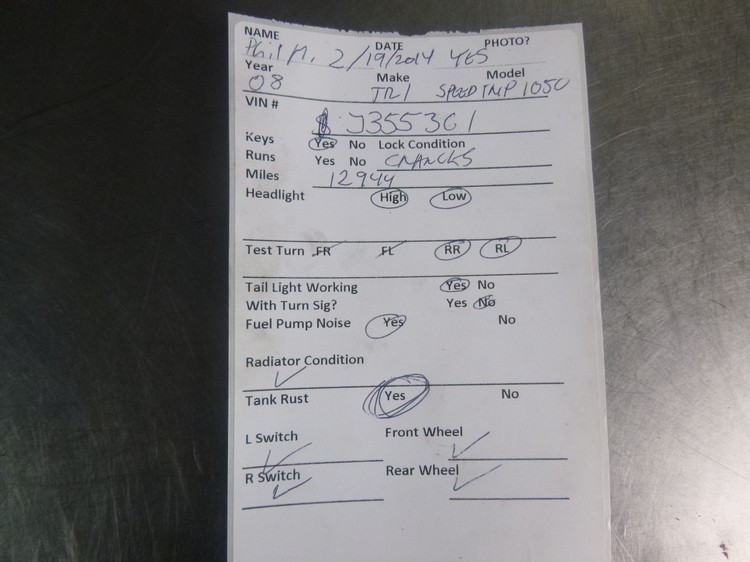 NAME DATE PHOTO?
Phil M. 2/19/2014 YES
Year Make Model
08 TRI SPEED TRIP 1050
VIN #
J355361
Keys Yes No Lock Condition
Runs Yes No CRANCKS
Miles 12944
Headlight High Low
Test Turn FR FL RR RL
Tail Light Working Yes No
With Turn Sig? Yes No
Fuel Pump Noise Yes No
Radiator Condition
Tank Rust Yes No
L Switch Front Wheel
R Switch Rear Wheel